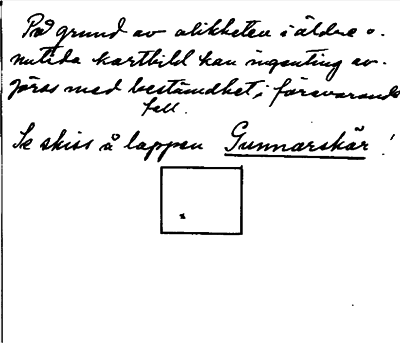 På grund av olikheten i äldre o.
nutida kartbild kan ingenting av-
göras med bestämdhet i förevarande
fall.
Se skiss å lappen Gunnarskär!